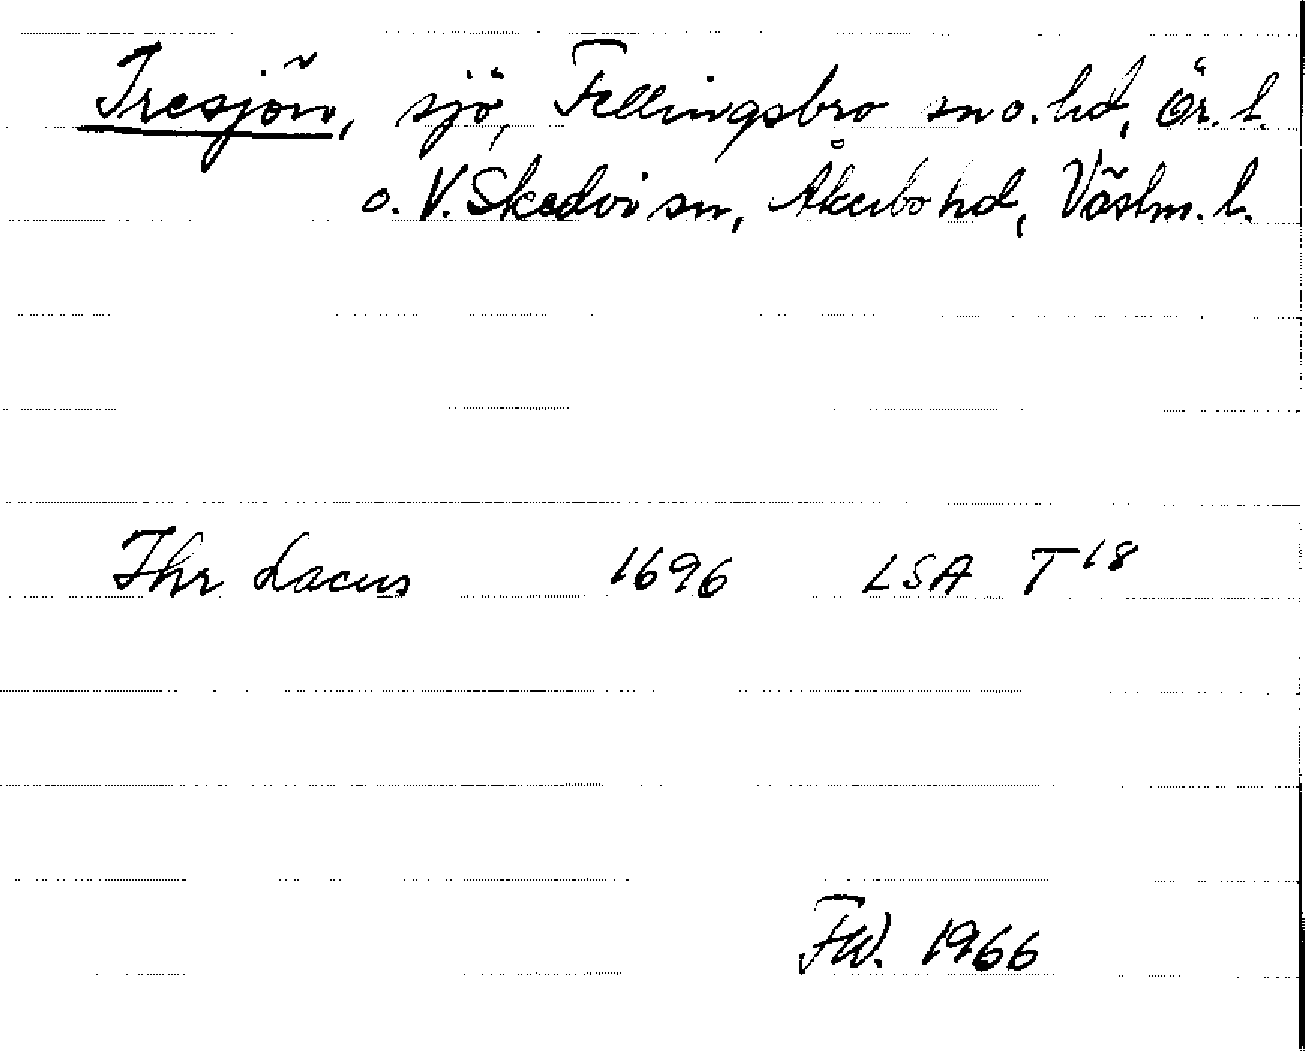 Iresjön, sjö, Fellingsbro sn o. hd, Ör. l.
o. V. Skedvi sn, Åkerbo hd, Västm. l.
Ihr Lacus 1696 LSA T 18
FW. 1966